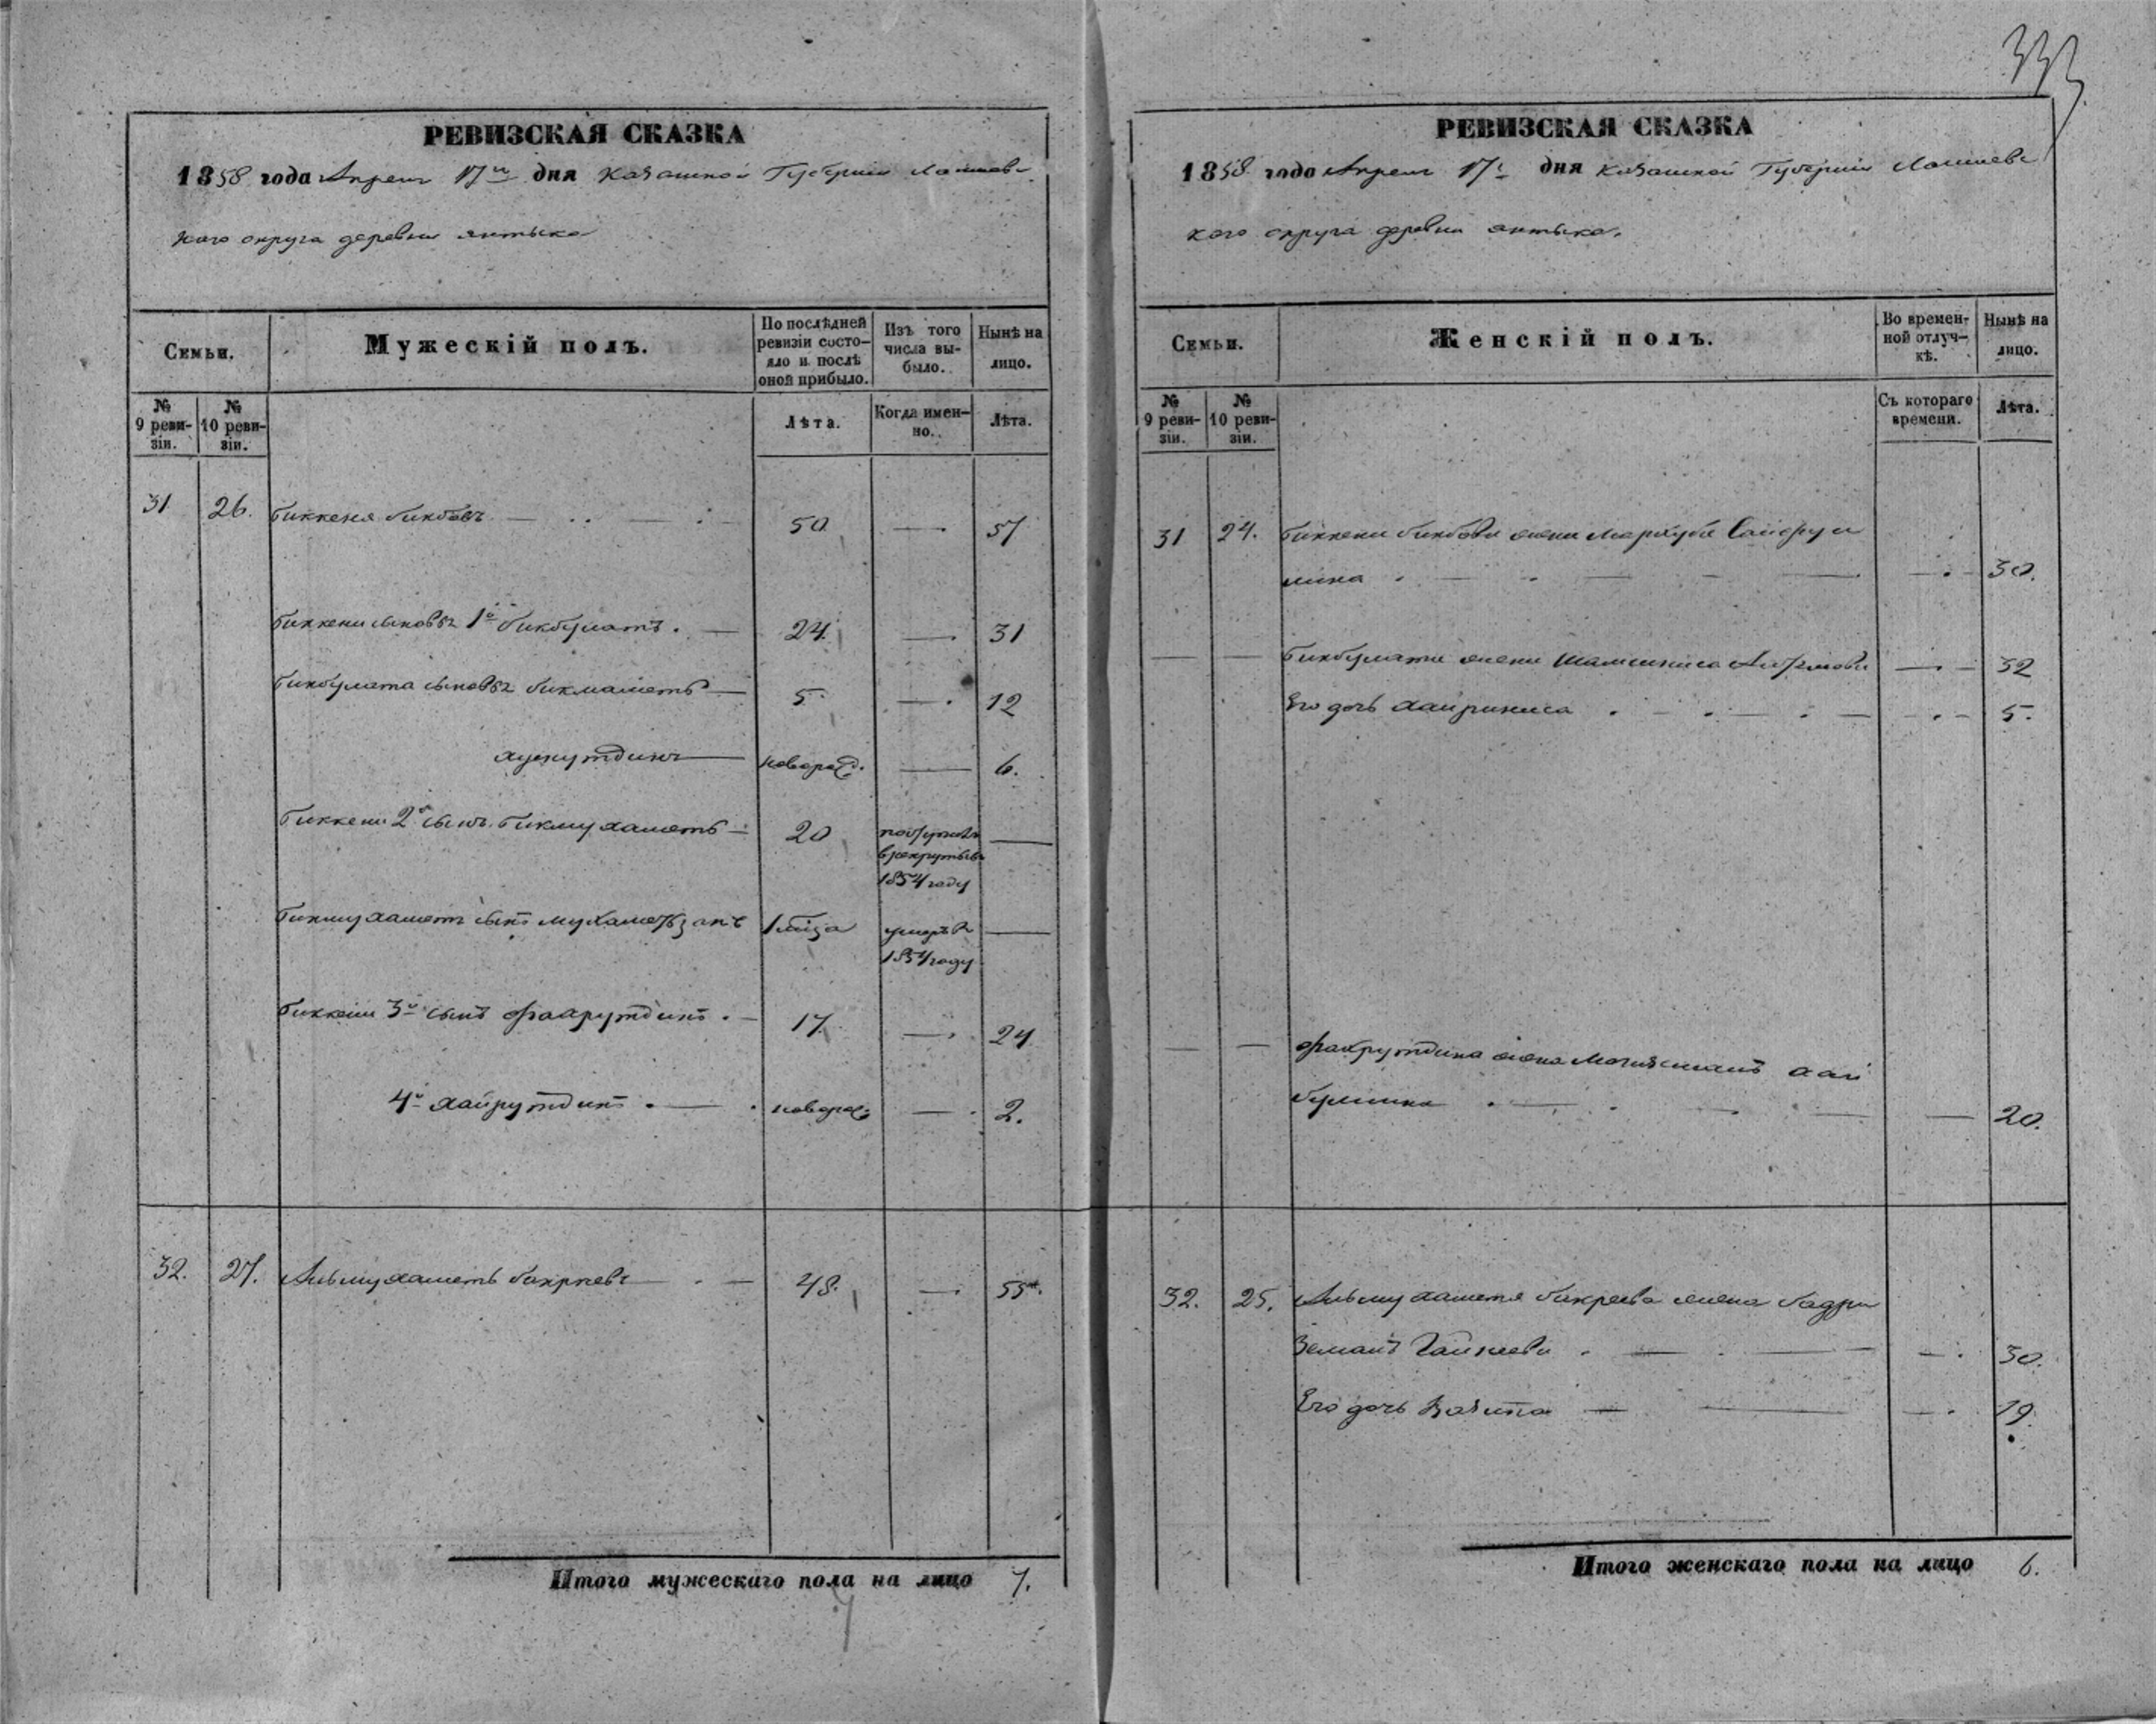 333
РЕВИЗСКАЯ СКАЗКА
1858 года Апреля 17го дня Казанской Губернии Лаишевс
кого округа деревни янтыка
Семьи.
Мужескій полъ.
По послѣдней ревизіи состояло и послѣ оной прибыло.
Изъ того числа выбыло.
Нынѣ на лицо.
№ 9 ревизіи.
№ 10 ревизіи.
Лѣта.
Когда именно.
Лѣта.
31 26. биккеня бикбовъ 50 — 57
биккени сыновья 1й бикбулатъ. — 24. — 31
бикбулата сыновья бикмаметъ — 5. — 12
новорож. — 6.
биккени 2й сынъ бикмухаметъ — 20 поступилъ —
в рекруты в
1854 году
бикмухаметя сынъ мухаметзянъ умеръ в —
1854 году
биккени 3й сынъ фахрутдинъ. — 17. — 24
4й хайрутдинъ. — новорож. — 2.
32. 27. Альмухаметь бакреевъ — 48. — 55.
Итого мужескаго пола на лицо 7.
РЕВИЗСКАЯ СКАЗКА
1858 года Апреля 17г дня Казанской Губернии Лаишевс
кого округа деревни янтыка.
Семьи.
Женскій полъ.
Во временной отлучкѣ.
Нынѣ на лицо.
№ 9 ревизіи.
№ 10 ревизіи.
Съ котораго времени.
Лѣта.
31 24. биккени бикбова жена Мархуба Сайфул
лина — 30.
— — бикбулата жена Шамсиниса — 32
Его дочь хайриниса — 5.
— — фахрутдина жена хай
буллина — 20.
32. 25. Альмухаметя бакреева жена бадри
Земалъ — 30.
Его дочь — 19.
Итого женскаго пола на лицо 6.